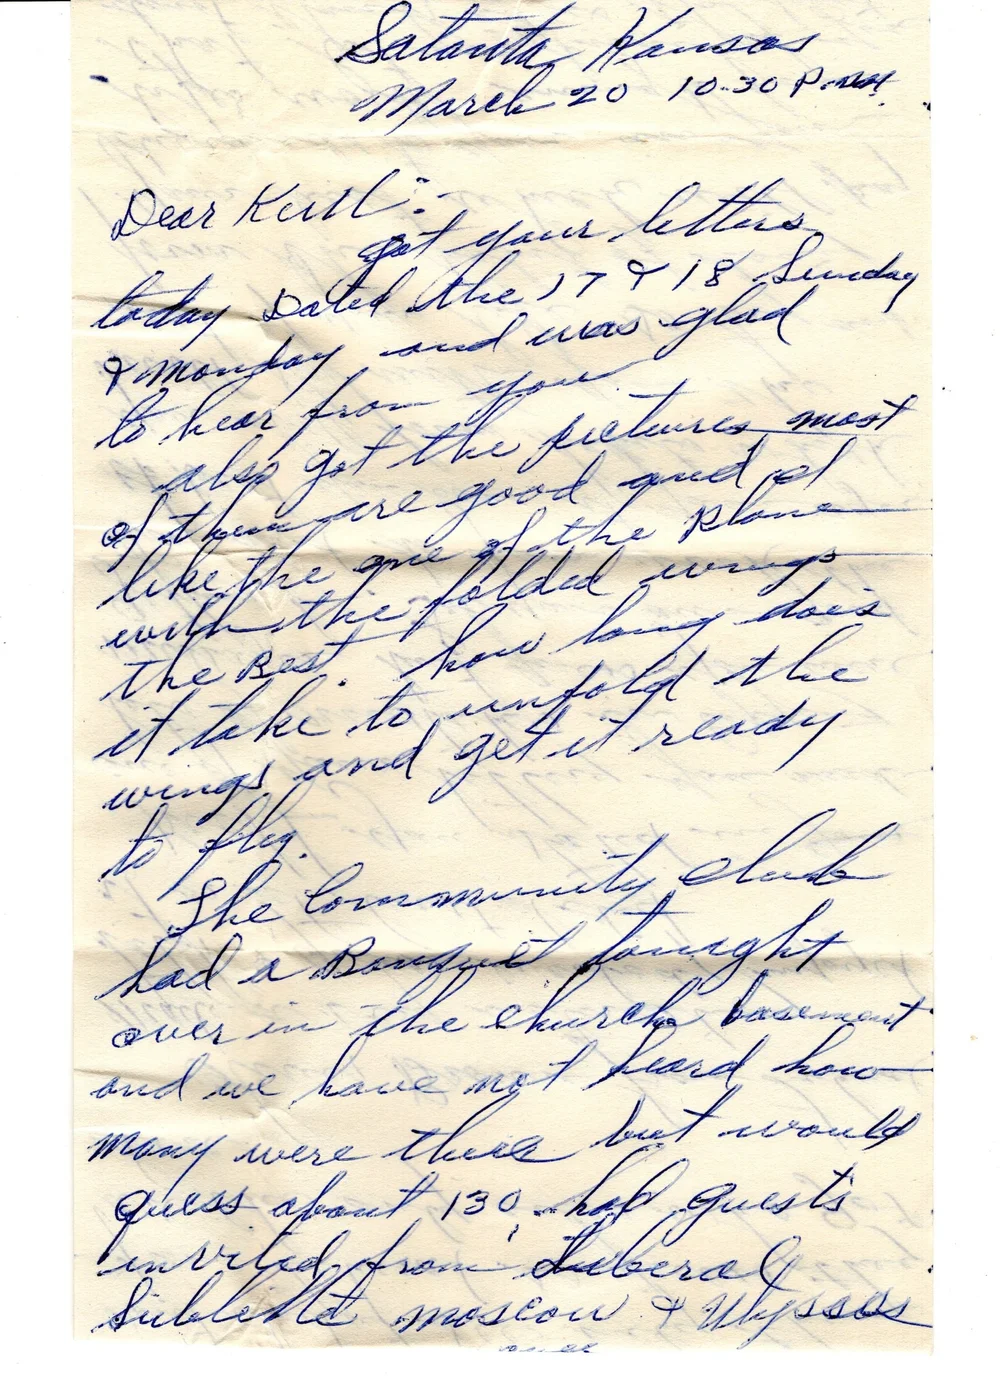 Satanta Kansas
March 20 10.30 P.M.
Dear Keith :-
got your letters
today Dated the 17 & 18 Sunday
& Monday and was glad
to hear from you
also got the pictures most
of them are good and I
like the one of the Plane
with the folded wings
the Best. how long does
it take to unfold the
wings and get it ready
to fly.
The Community club
had a Banquet tonight
over in the church basement
and we have not heard how
many were there but would
guess about 130. had guests
invited from Liberal
Sublette Moscow & Ulysses
over